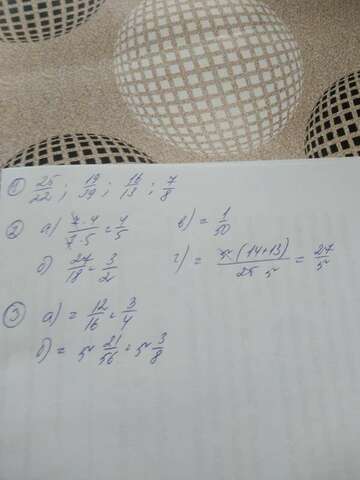 ① 25/22; 19/39; 16/13; 7/8
② а) 7·4/7·5 = 4/5 в) = 1/50
б) 27/18 = 3/2 г) = 5·(14+13)/25 5 = 27/5
③ а) = 12/16 = 3/4
б) = 5 21/56 = 5 3/8